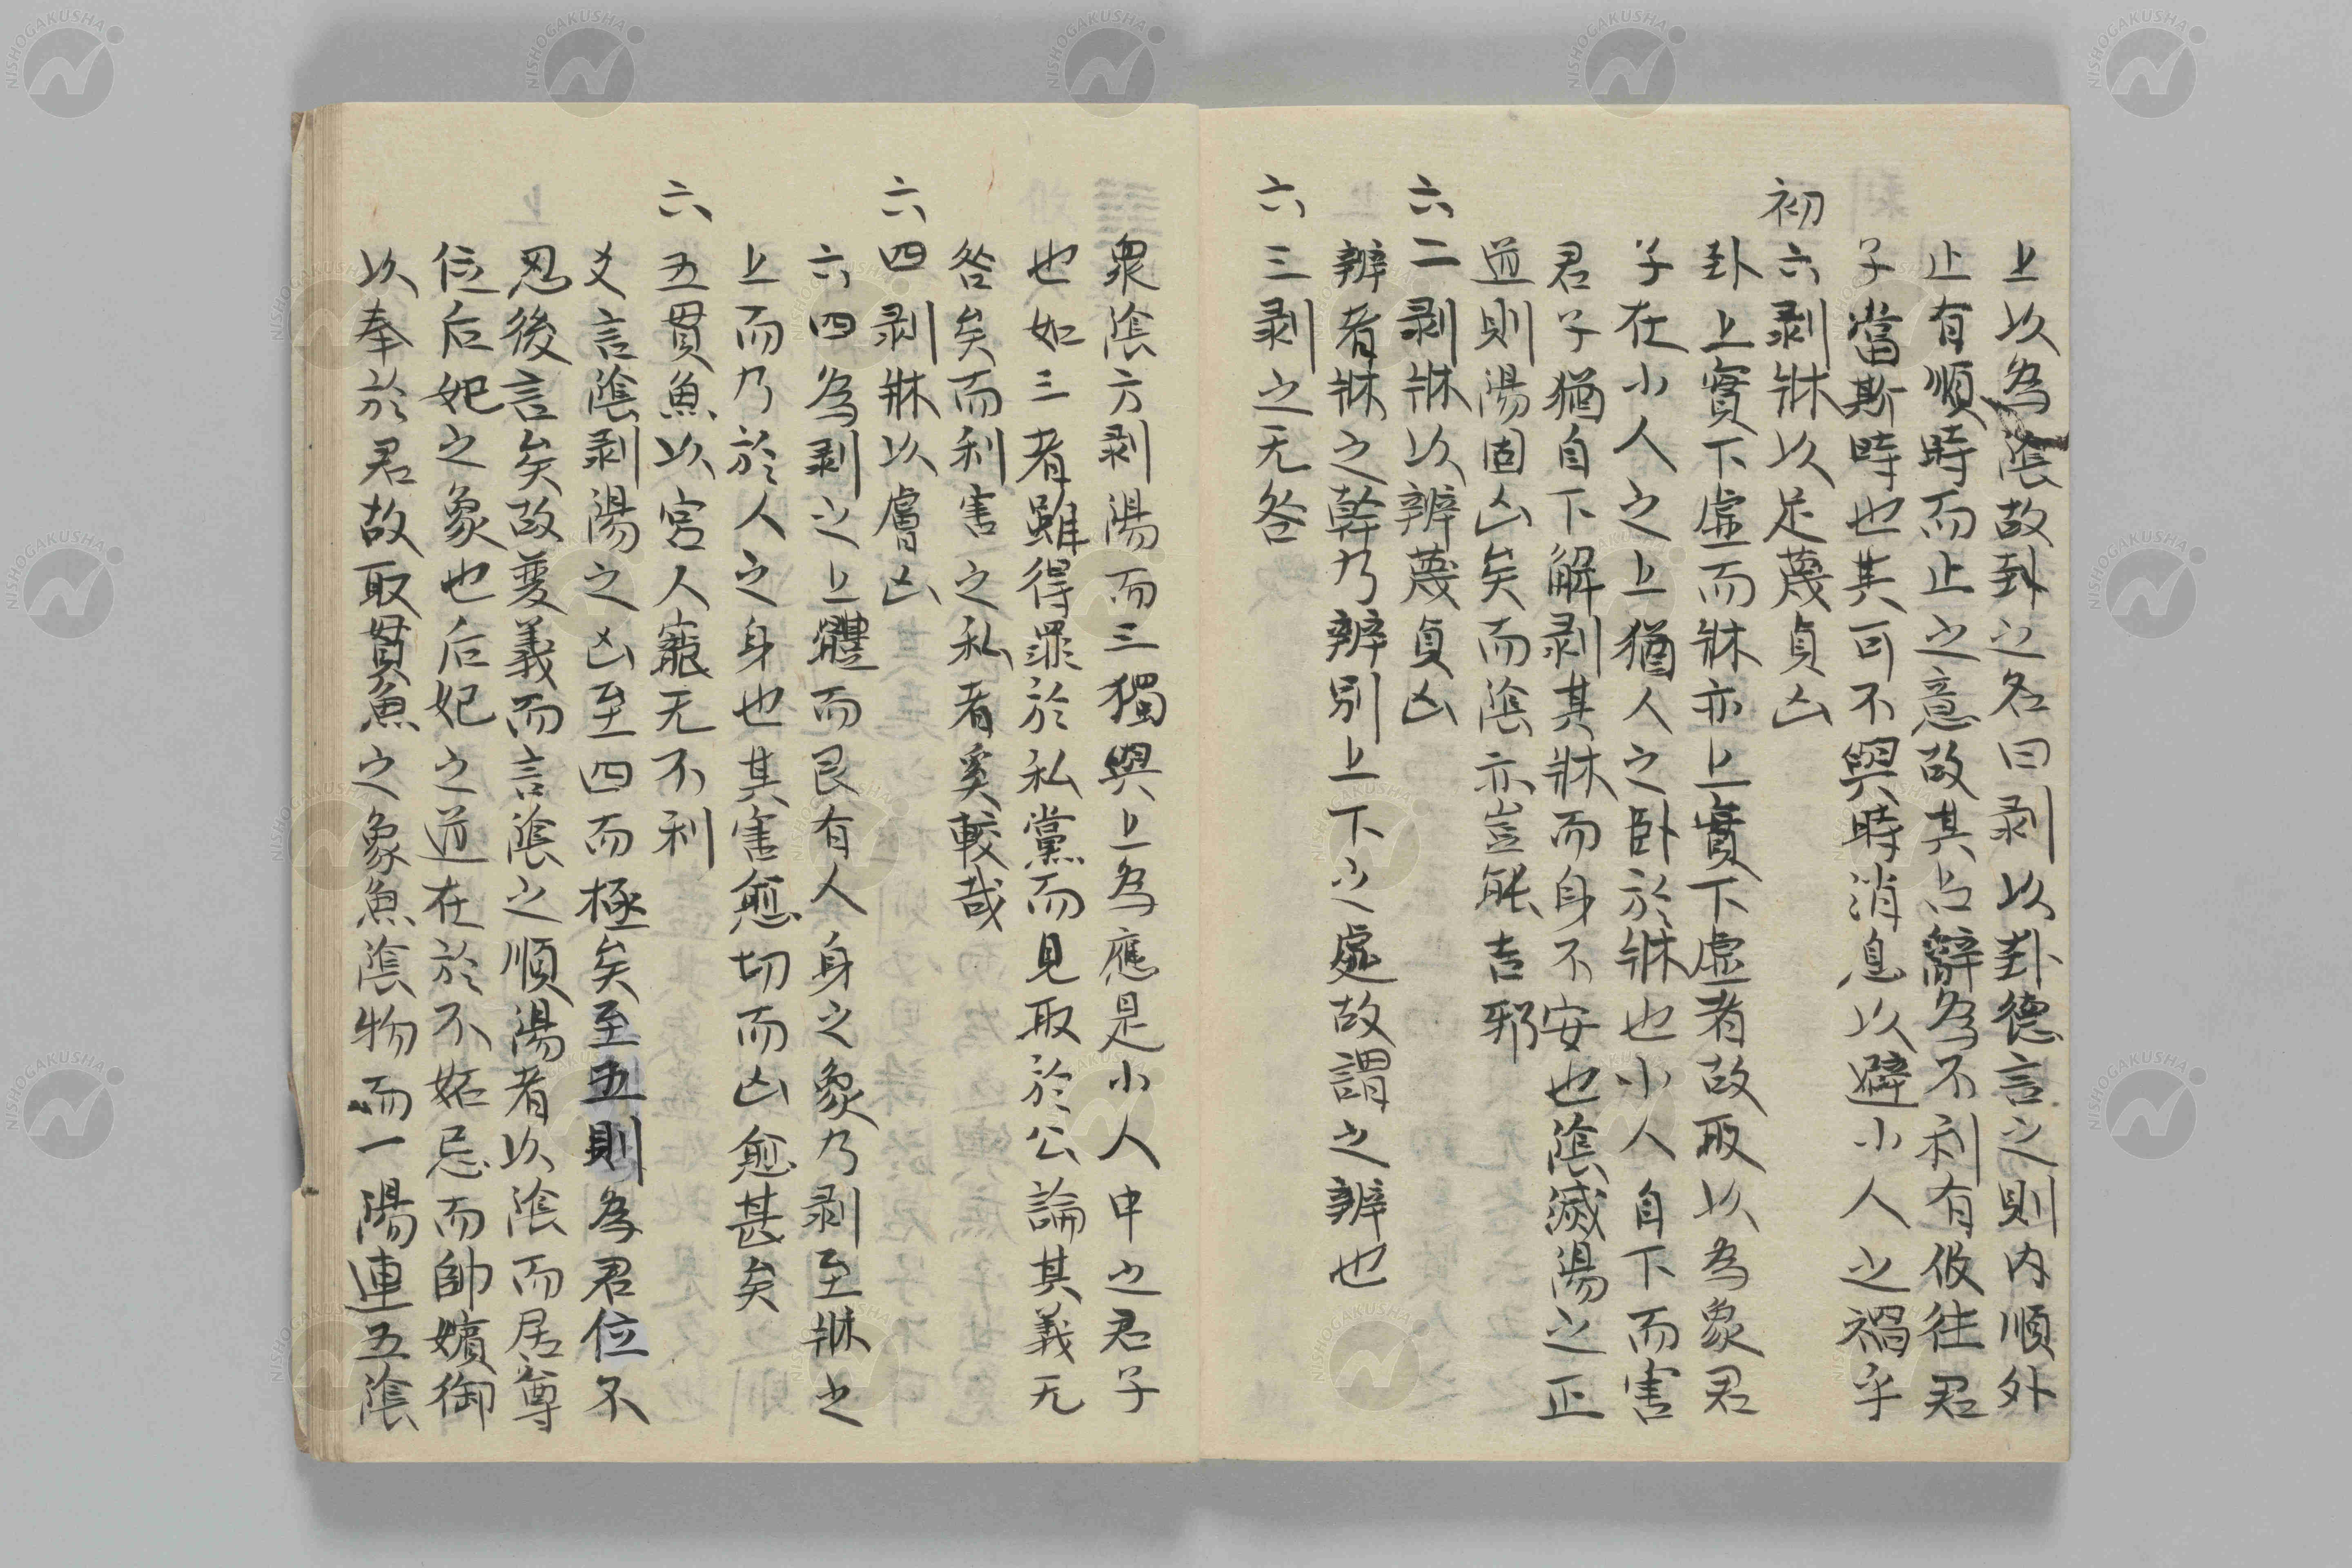 上以為陰故卦之名曰剥以卦德言之則内順外
止有順時而止之意故其占辭為不利有攸往君
子當斯時也其可不與時消息以避小人之禍乎
初六剥牀以足蔑貞凶
卦上實下虚而牀亦上實下虚者故取以為象君
子在小人之上猶人之卧於牀也小人自下而害
君子猶自下解剥其牀而身不安也陰滅陽之正
道則陽固凶矣而陰亦豈能吉邪
六二剥牀以辨蔑貞凶
辨者牀之幹乃辨別上下之處故謂之辨也
六三剥之无咎
衆陰方剥陽而三獨與上為應是小人中之君子
也如三者雖得罪於私黨而見取於公論其義无
咎矣而利害之私者奚較哉
六四剥牀以膚凶
六四為剥之上體而艮有人身之象乃剥至牀之
上而乃於人之身也其害愈切而凶愈甚矣
六五貫魚以宮人寵无不利
爻言陰剥陽之凶至四而極矣至五則為君位不
忍後言矣故变義而言陰之順陽者以陰而居尊
位后妃之象也后妃之道在於不妬忌而帥嬪御
以奉於君故取貫魚之象魚陰物而一陽連五陰
NISHOGAKUSHA